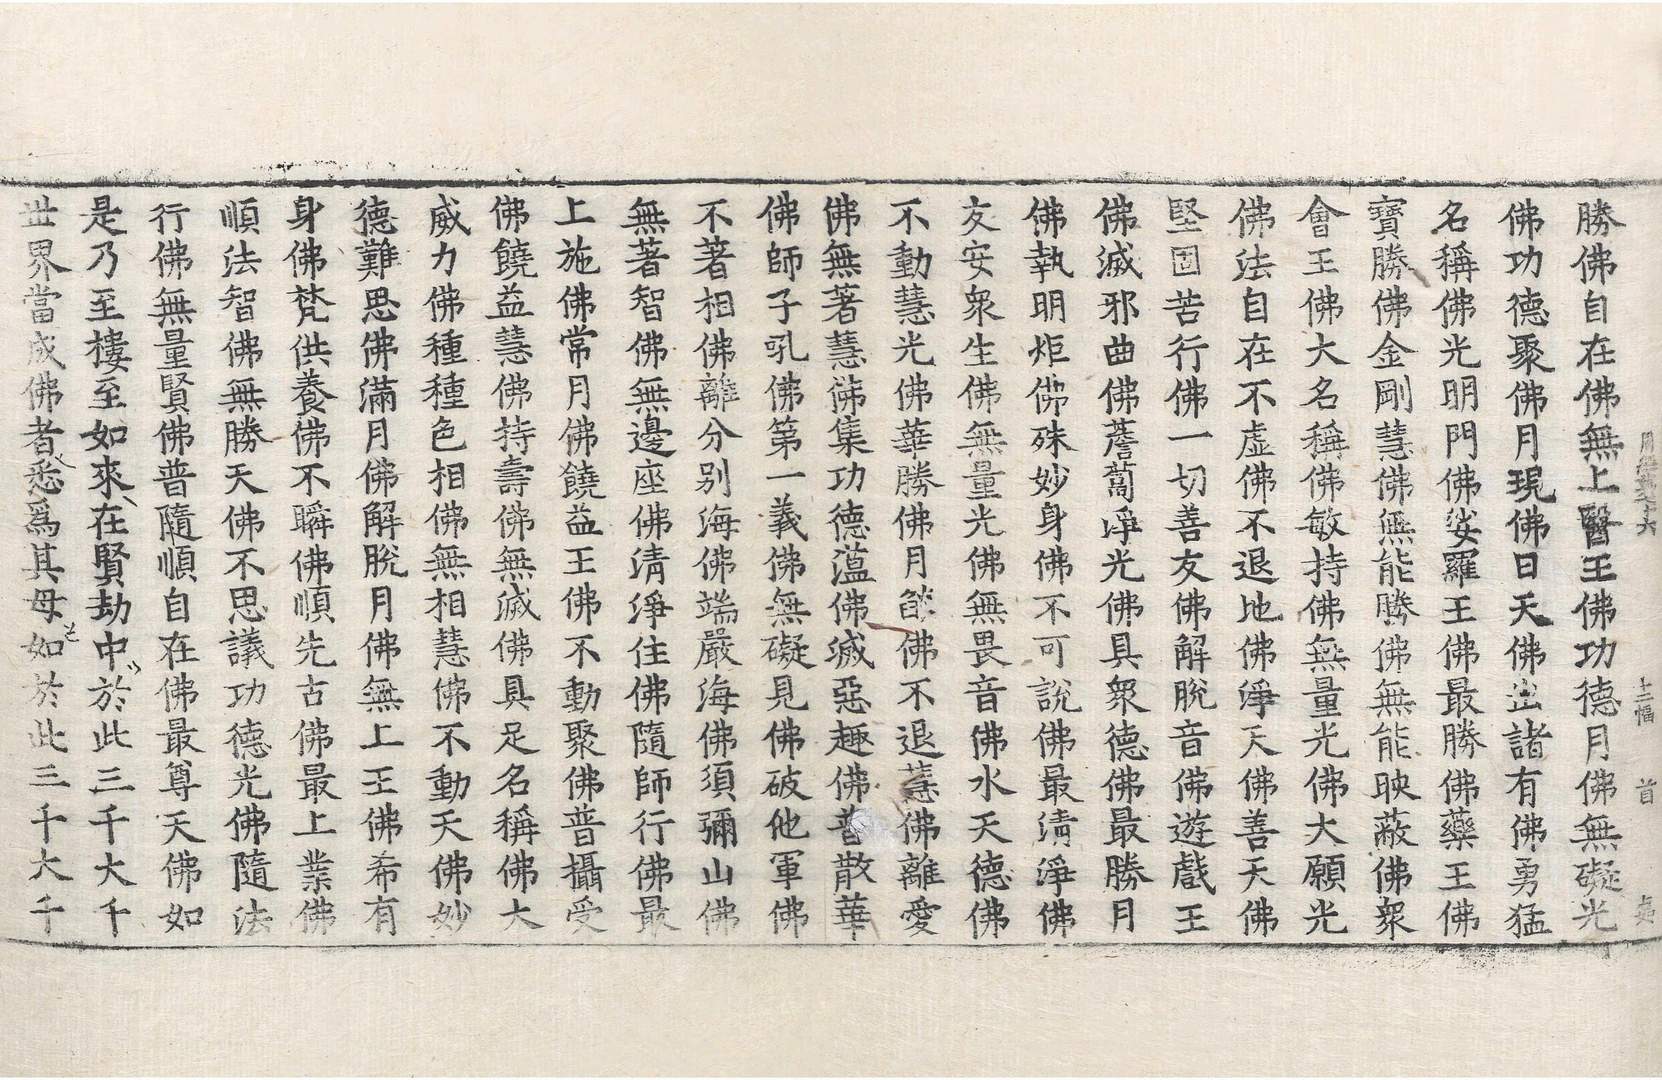 勝佛自在佛無上醫王佛功德月佛無礙光
佛功德聚佛月現佛日天佛出諸有佛勇猛
名稱佛光明門佛娑羅王佛最勝佛藥王佛
寶勝佛金剛慧佛無能勝佛無能映蔽佛衆
會王佛大名稱佛敏持佛無量光佛大願光
佛法自在不虛佛不退地佛淨天佛善天佛
堅固苦行佛一切善友佛解脫音佛遊戲王
佛滅邪曲佛薝蔔淨光佛具衆德佛最勝月
佛執明炬佛殊妙身佛不可說佛最清淨佛
友安衆生佛無量光佛無畏音佛水天德佛
不動慧光佛華勝佛月燄佛不退慧佛離愛
佛無著慧佛集功德藴佛滅惡趣佛普散華
佛師子吼佛第一義佛無礙見佛破他軍佛
不著相佛離分别海佛端嚴海佛須彌山佛
無著智佛無邊座佛清淨住佛隨師行佛最
上施佛常月佛饒益王佛不動聚佛普攝受
佛饒益慧佛持壽佛無滅佛具足名稱佛大
威力佛種種色相佛無相慧佛不動天佛妙
德難思佛滿月佛解脫月佛無上王佛希有
身佛梵供養佛不瞬佛順先古佛最上業佛
順法智佛無勝天佛不思議功德光佛隨法
行佛無量賢佛普隨順自在佛最尊天佛如
是乃至樓至如來在賢劫中於此三千大千
世界當成佛者悉爲其母如於此三千大千